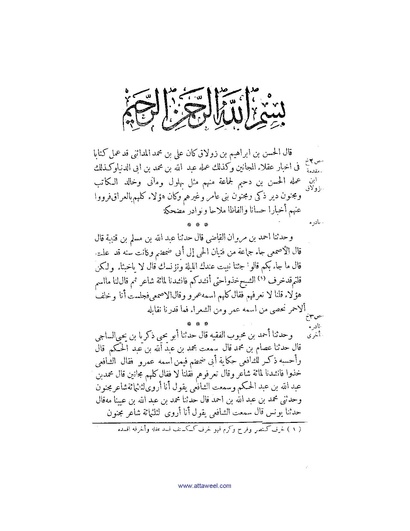 بسم الله الرحمن الرحيم
قال الحسن بن ابراهيم بن زولاق كان على بن محمد المدائنى قد عمل كتابا
فى اخبار عقلاء المجانين وكذلك عمله عبد الله بن محمد بن ابى الدنيا وكذلك
عمله الحسن بن دحيم لجماعة منهم مثل بهلول ومانى وخالد الكاتب
ومجنون دير ذكى ومجنون بنى عامر وغيرهم وكان هؤلاء كلهم بالعراق فرووا
عنهم أخبارا حسانا والفاظا ملاحا ونوادر مضحكة
* * *
وحدثنا احمد بن مروان القاضى قال حدثنا عبد الله بن مسلم بن قتيبة قال
قال الاصمعى جاء جماعة من فتيان الحى إلى أبى ضمضم وكانت سنه قد علت
قال ما جاء بكم قالوا جئنا نبيت عندك الليلة ونزيدك قال لا ياخبثا. ولكن
قلتم قد خرف (١) الشيخ خذوا حتى أنشدكم فانشدنا لمائة شاعر ثم قال لنا ما اسم
هؤلاء قلنا لا نعرفهم فقال كلهم اسمه عمرو وقال الاصمعى فجلست أنا وخلف
الأحمر نحصى من اسمه عمر ومن الشعراء فما قدرنا نقابله
* * *
وحدثنا أحمد بن محبوب الفقيه قال حدثنا أبو يحيى ذكريا بن يحيى الساجى
قال حدثنا عصام بن محمد قال سمعت محمد بن عبد الله بن عبد الحكيم قال
وأحسبه ذكر للشافعى حكاية أبى ضمضم فيمن اسمه عمرو فقال الشافعى
خذوا فانشدنا لمائة شاعر وقال تعرفوهم فقلنا لا فقال كلهم مجانين قال محمد بن
عبد الله بن عبد الحكيم وسمعت الشافعى يقول أنا أروى لثلاثمائة شاعر مجنون
وحدثنى محمد بن عبد الله بن احمد قال حدثنا محمد بن عبد الله بن
حدثنا يونس قال سمعت الشافعى يقول أنا أروى لثلثمائة شاعر مجنون
(١) خرف كنصر وفرح وكرم فهو خرف ككتف فسد عقله وأخرفه افسده
مقدمة
ابن
زولاق
نادره
نادره
أخرى
www.attaweel.com